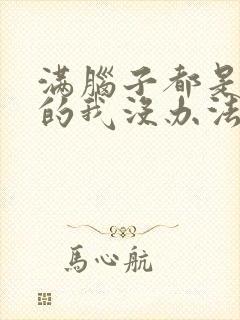 满腦子都是
的我沒办法
馬心航